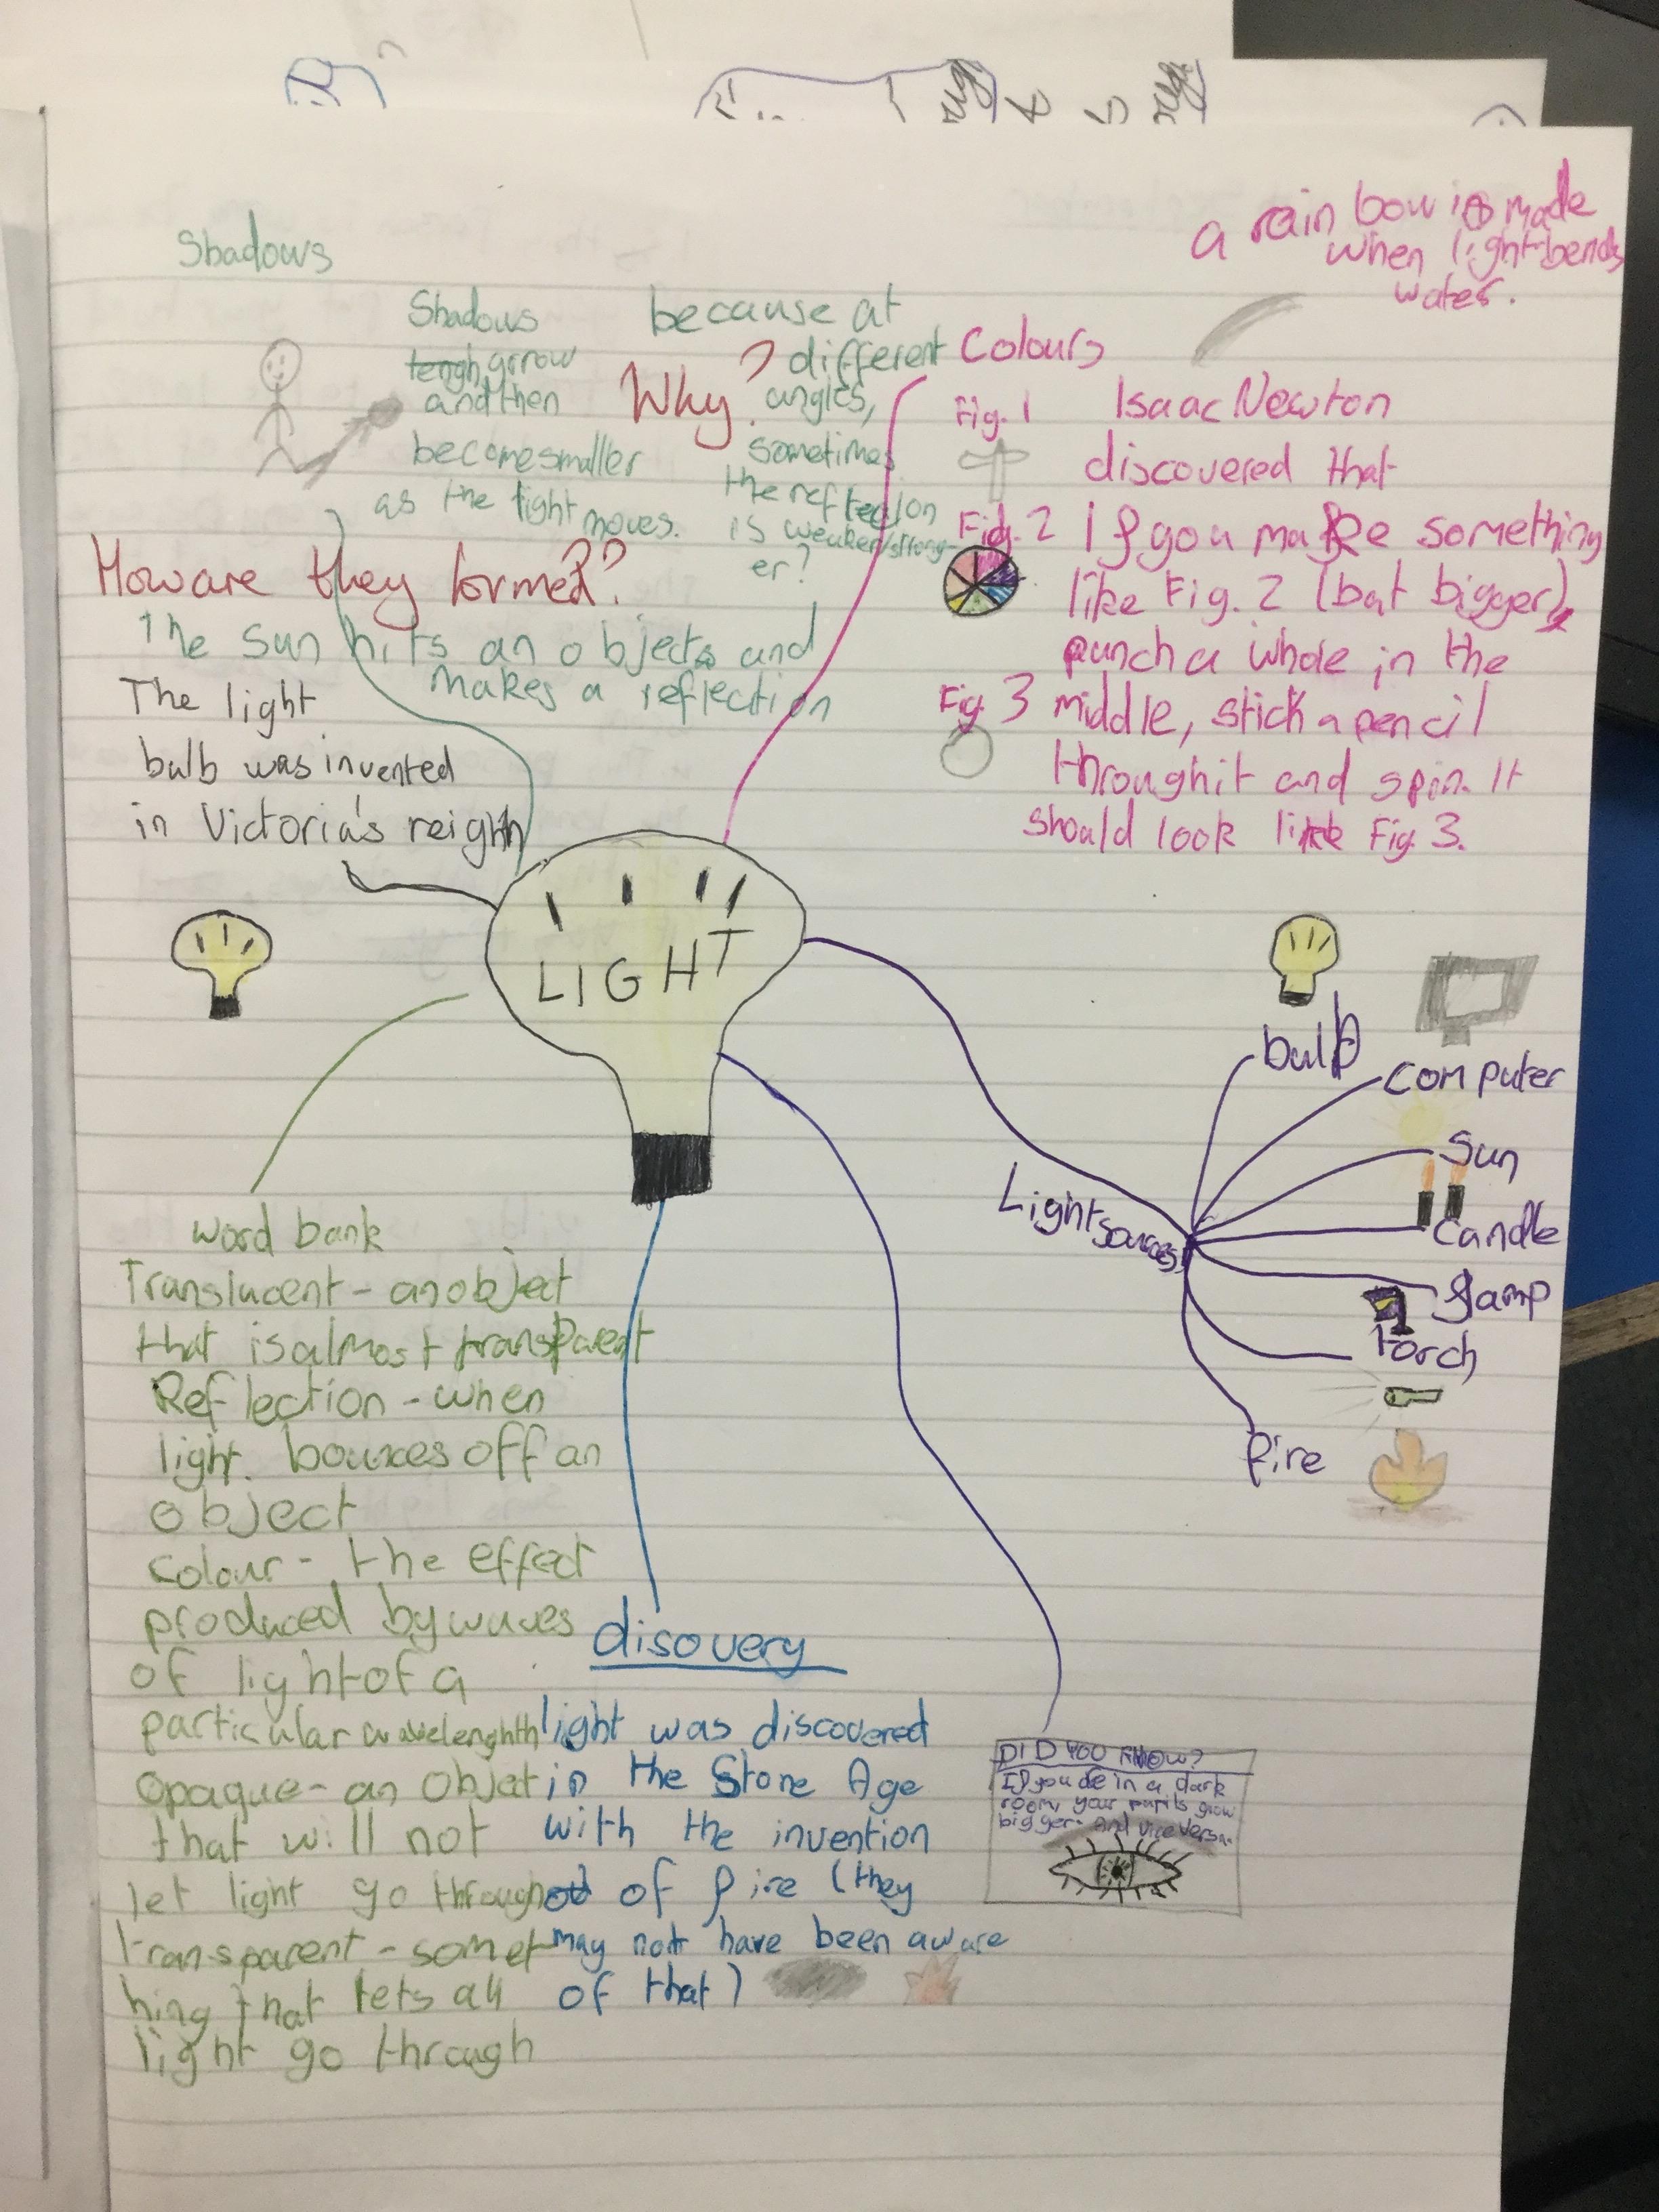 Shadows
Shadows
grrow
and then
become smaller
as the light moves.
Why?
because at
different
angles,
sometimes
the reflection
is weaker/strong-
er?
How are they formed??
The sun hits an objects and
makes a reflection
The light
bulb was invented
in Victoria's reighn
a rain bow is made
when light bends
water.
Colours
Fig. 1
Isaac Newton
discovered that
Fig. 2
If you make something
like Fig. 2 (but bigger),
punch a whole in the
Fig 3
middle, stick a pencil
through it and spin. It
should look like Fig 3.
LIGHT
Light sources
bulb
computer
Sun
Candle
lamp
torch
fire
word bank
Translucent - an object
that is almost transparent
Reflection - when
light. bounces off an
object
Colour - the effect
produced by waves
of light of a
particular wavelenghth
opaque - an object
that will not
let light go through
transparent - somet
hing that lets all
light go through
disovery
light was discovered
in the Stone Age
with the invention
of fire (they
may not have been aware
of that)
DID YOU KNOW?
If you are in a dark
room, your pupils grow
bigger. And vice versa.